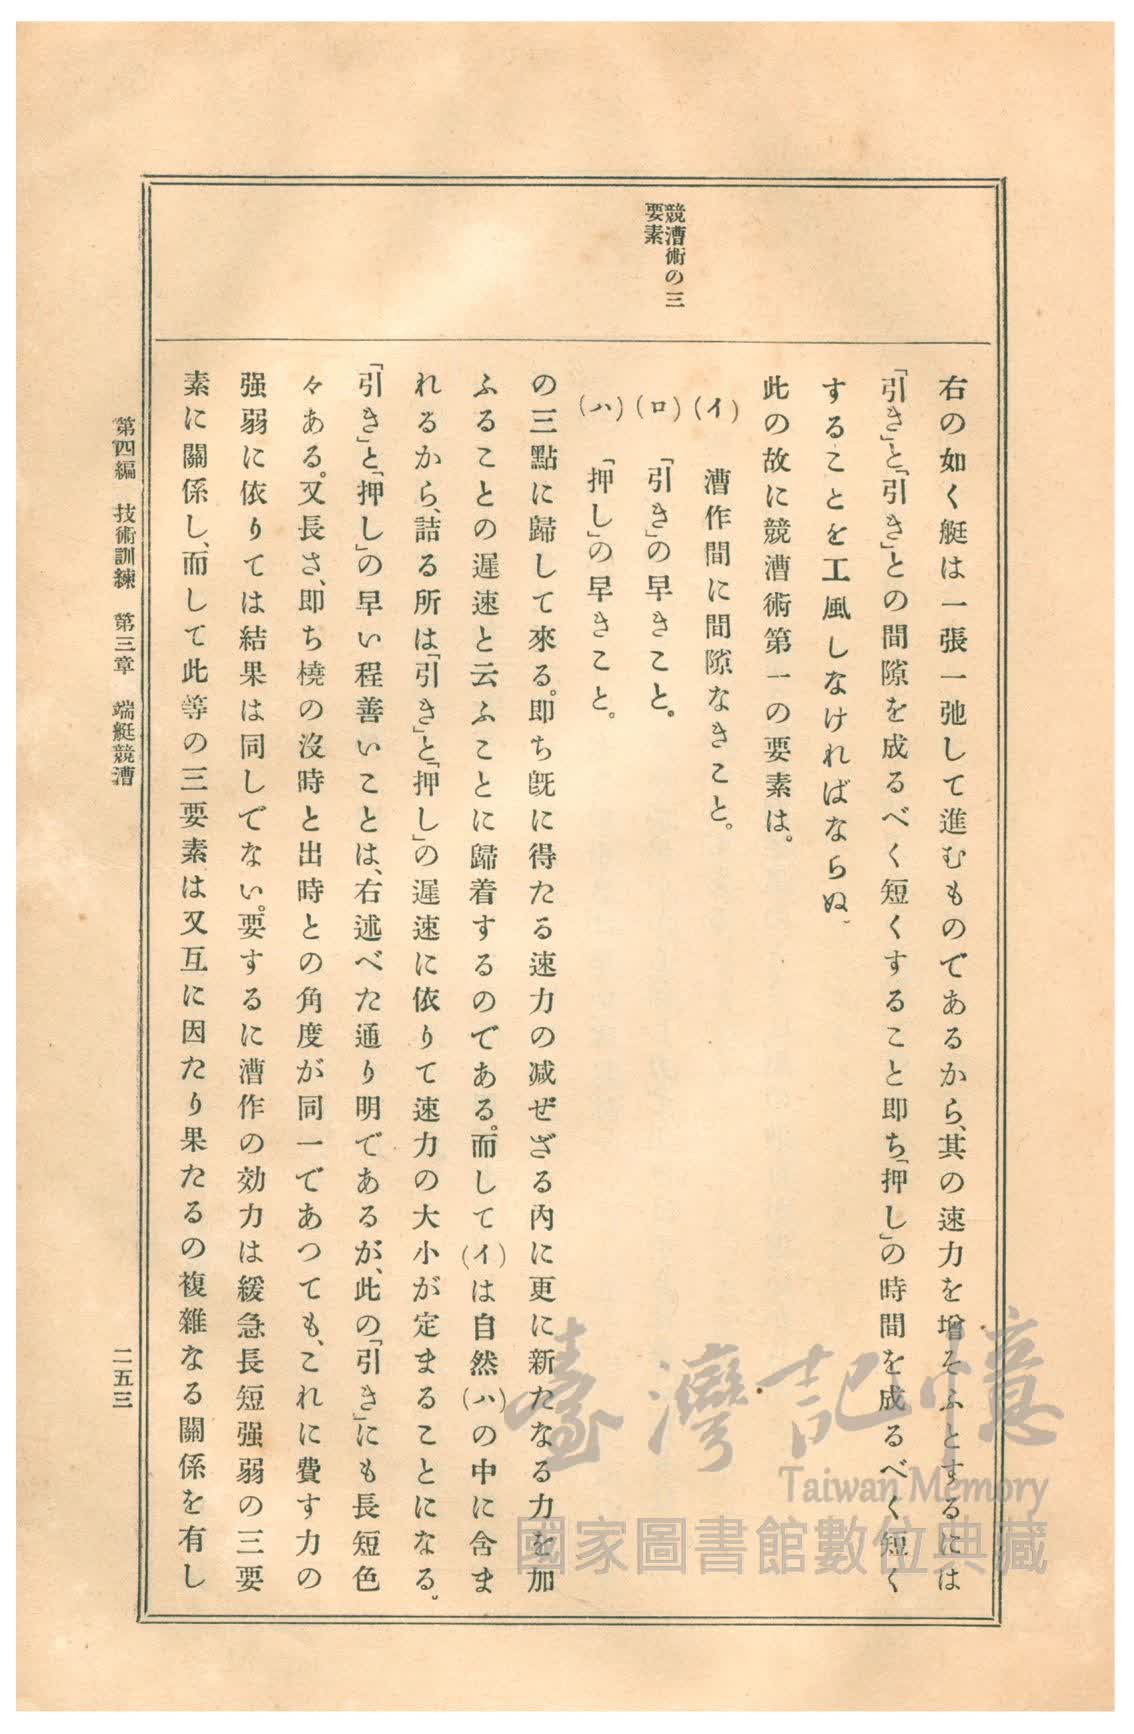 競漕術の三
要素
右の如く艇は一張一弛して進むものであるから、其の速力を增そふとするには
「引き」と「引き」との間隙を成るべく短くすること即ち「押し」の時間を成るべく短く
することを工風しなければならぬ、
此の故に競漕術第一の要素は。
(イ) 漕作間に間隙なきこと。
(ロ) 「引き」の早きこと。
(ハ) 「押し」の早きこと。
の三點に歸して來る。即ち旣に得たる速力の減ぜざる內に更に新たなる力を加
ふることの遲速と云ふことに歸着するのである。而して(イ)は自然(ハ)の中に含ま
れるから、詰る所は「引き」と「押し」の遲速に依りて速力の大小が定まることになる。
「引き」と「押し」の早い程善いことは、右述べた通り明であるが、此の「引き」にも長短色
々ある。又長さ、即ち橈の沒時と出時との角度が同一であつても、これに費す力の
强弱に依りては結果は同しでない。要するに漕作の効力は緩急長短强弱の三要
素に關係し、而して此等の三要素は又互に因たり果たるの複雜なる關係を有し
第四編 技術訓練 第三章 端艇競漕
二五三
臺灣記憶
Taiwan Memory
國家圖書館數位典藏